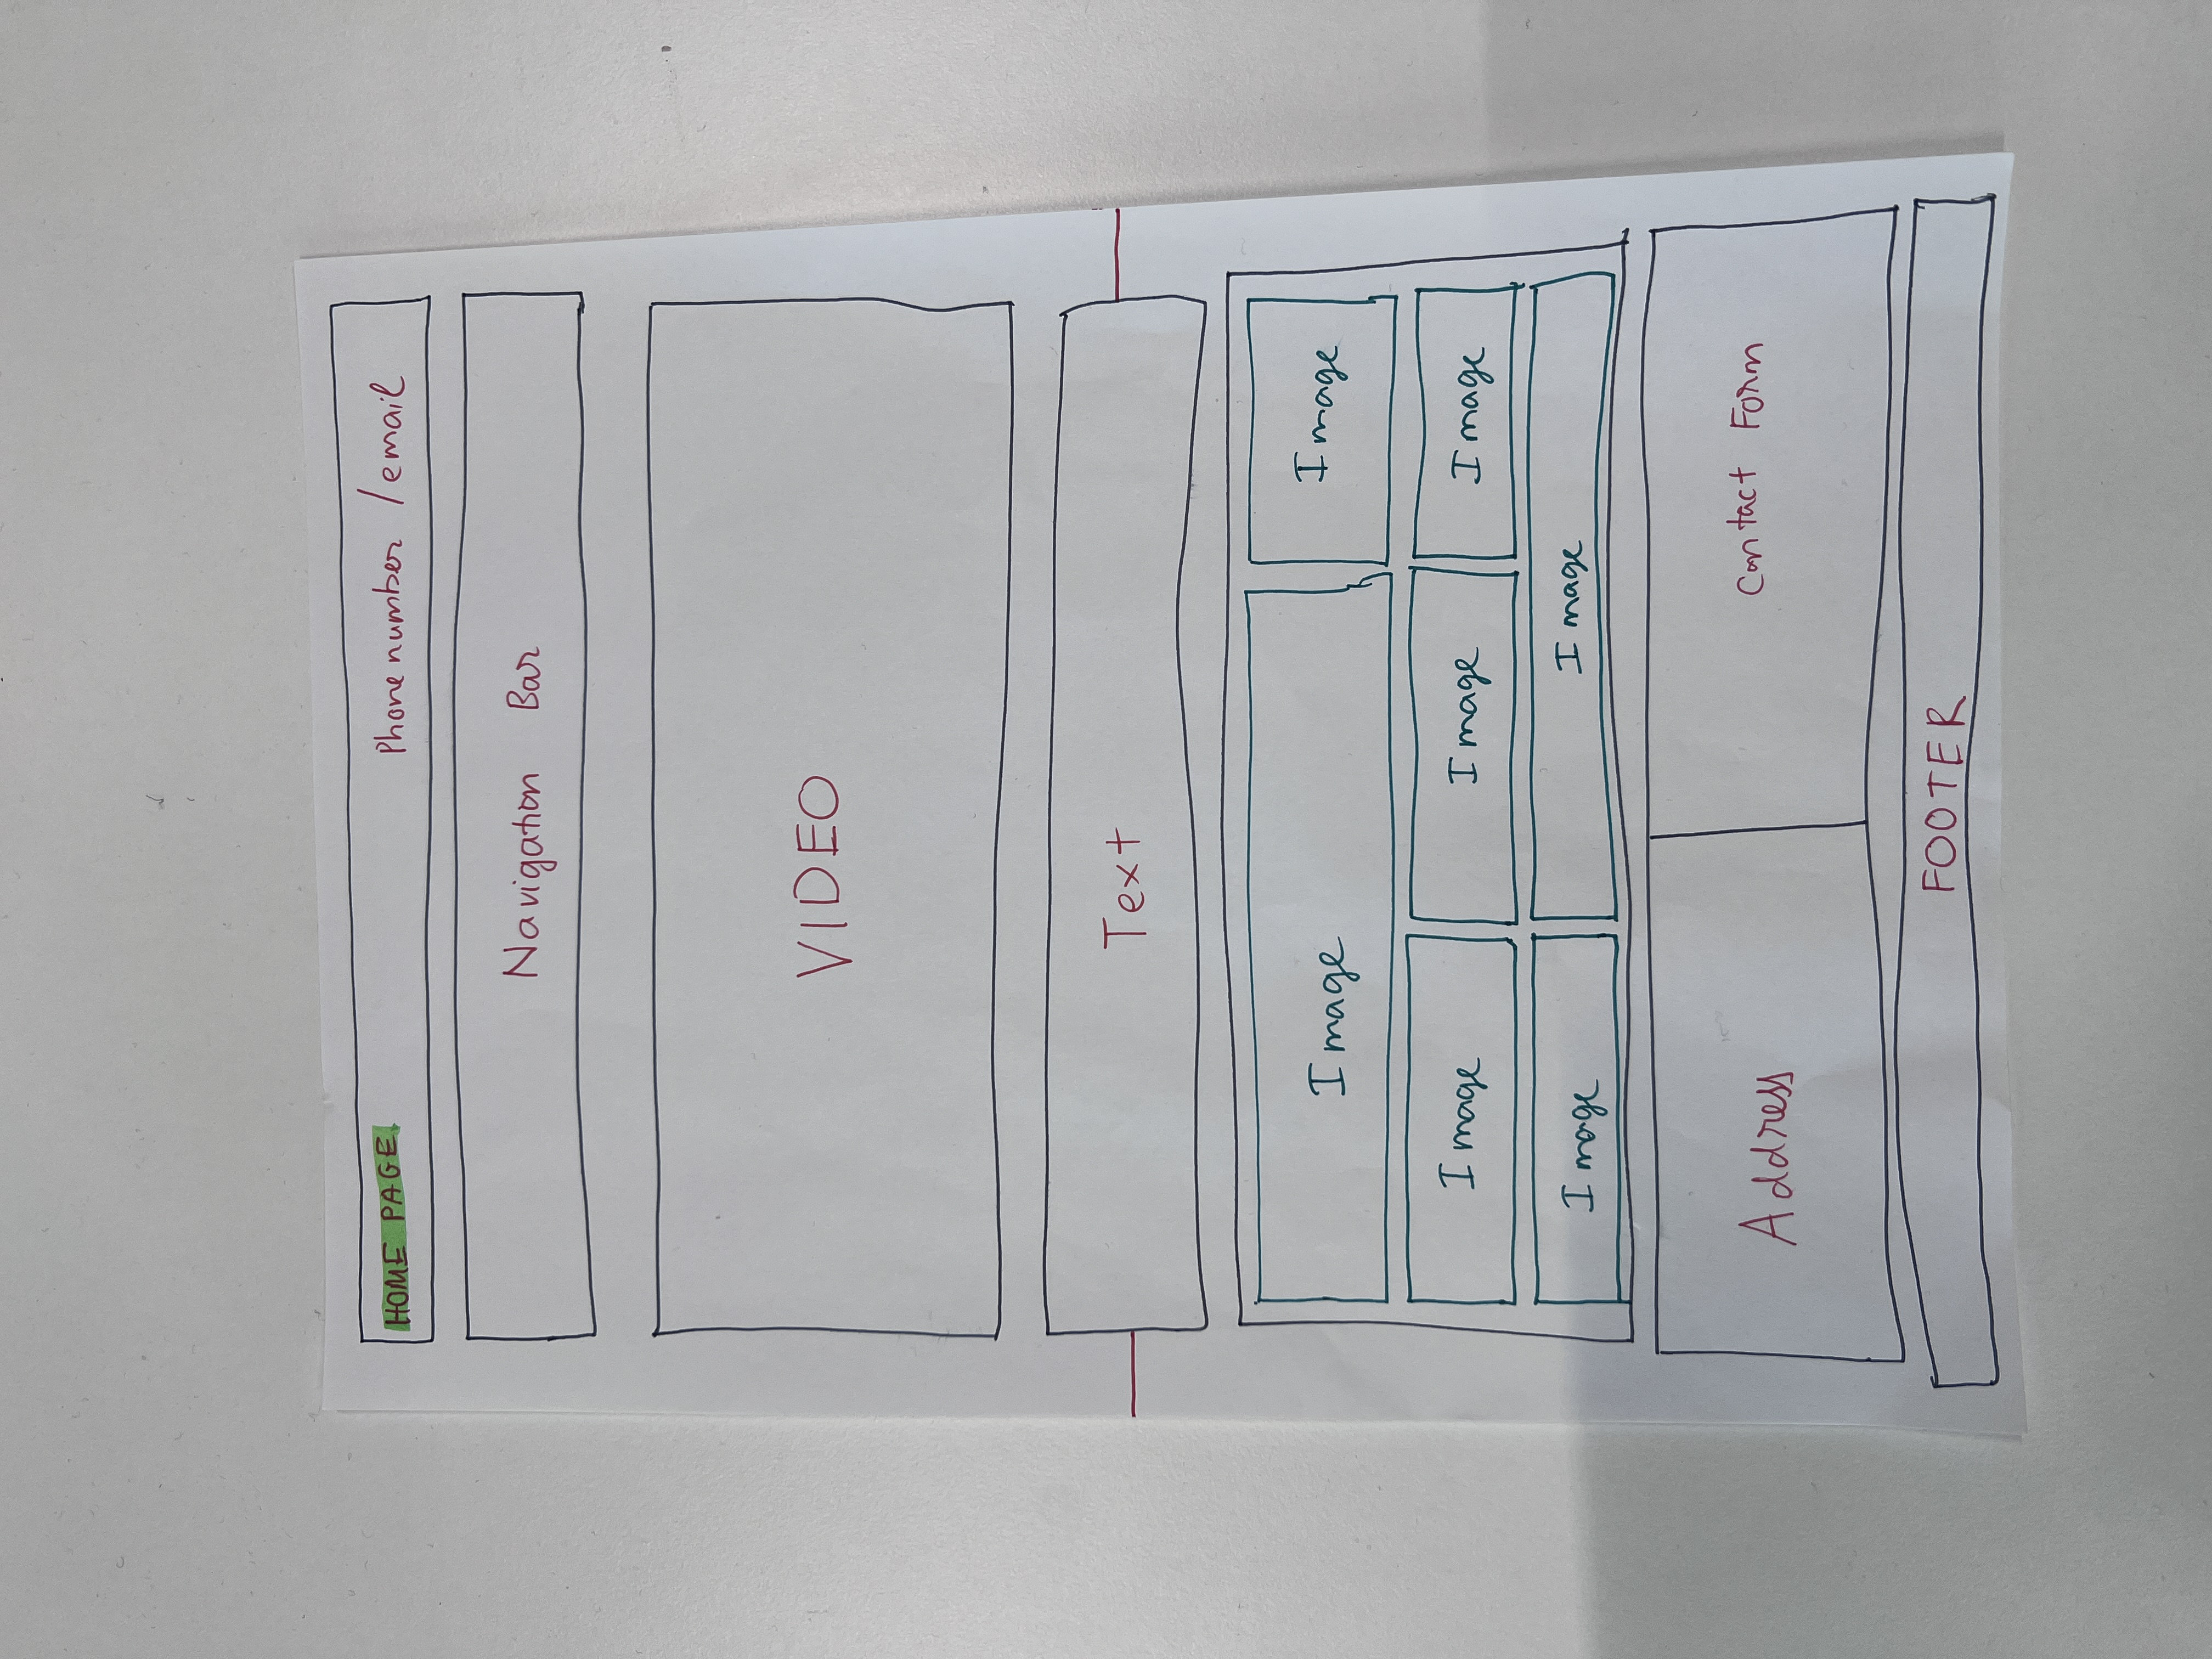 HOME PAGE Phone number / email
Navigation Bar
VIDEO
Text
Image Image
Image Image Image
Image Image
Address Contact Form
FOOTER